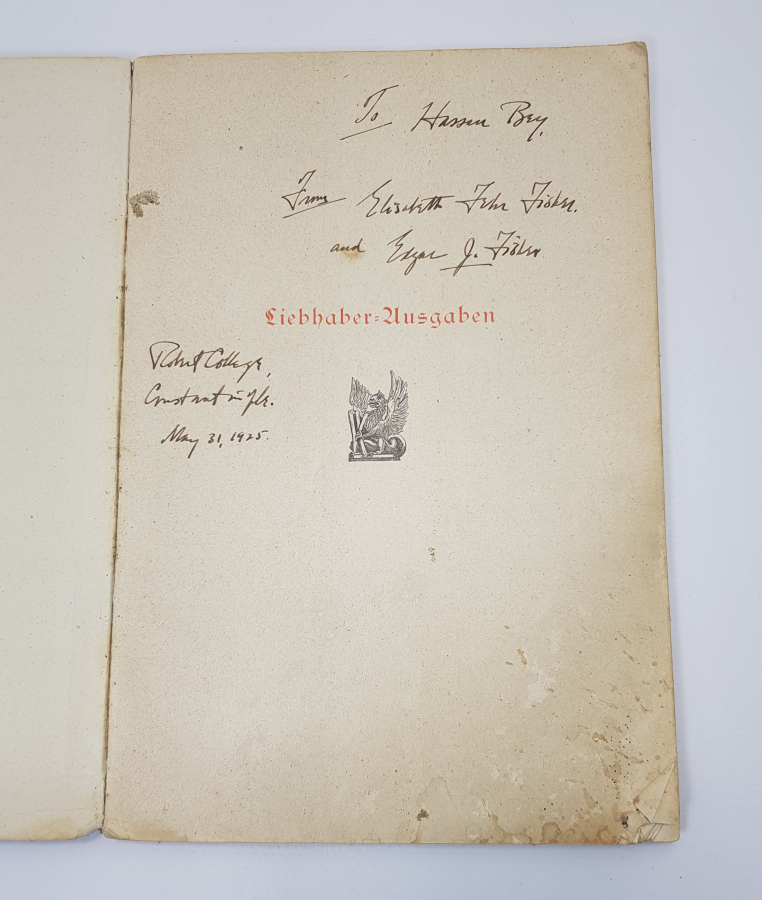 To Hassan Bey,
From Elizabeth Fehr Fisher.
and Edgar J. Fisher
Liebhaber=Ausgaben
Robert College,
Constantinople.
May 31, 1925.